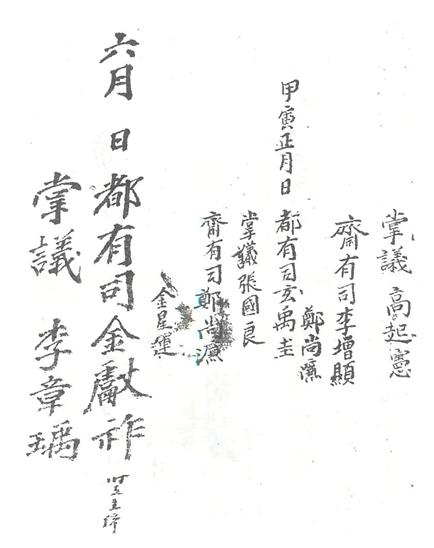 掌議 高起憲
齋有司 李增顯
鄭尚濂
甲寅正月日 都有司 玄禹圭
掌議 張國良
齋有司 鄭尚濂
金星運
六月 日 都有司 金獻祚
掌議 李章瑀